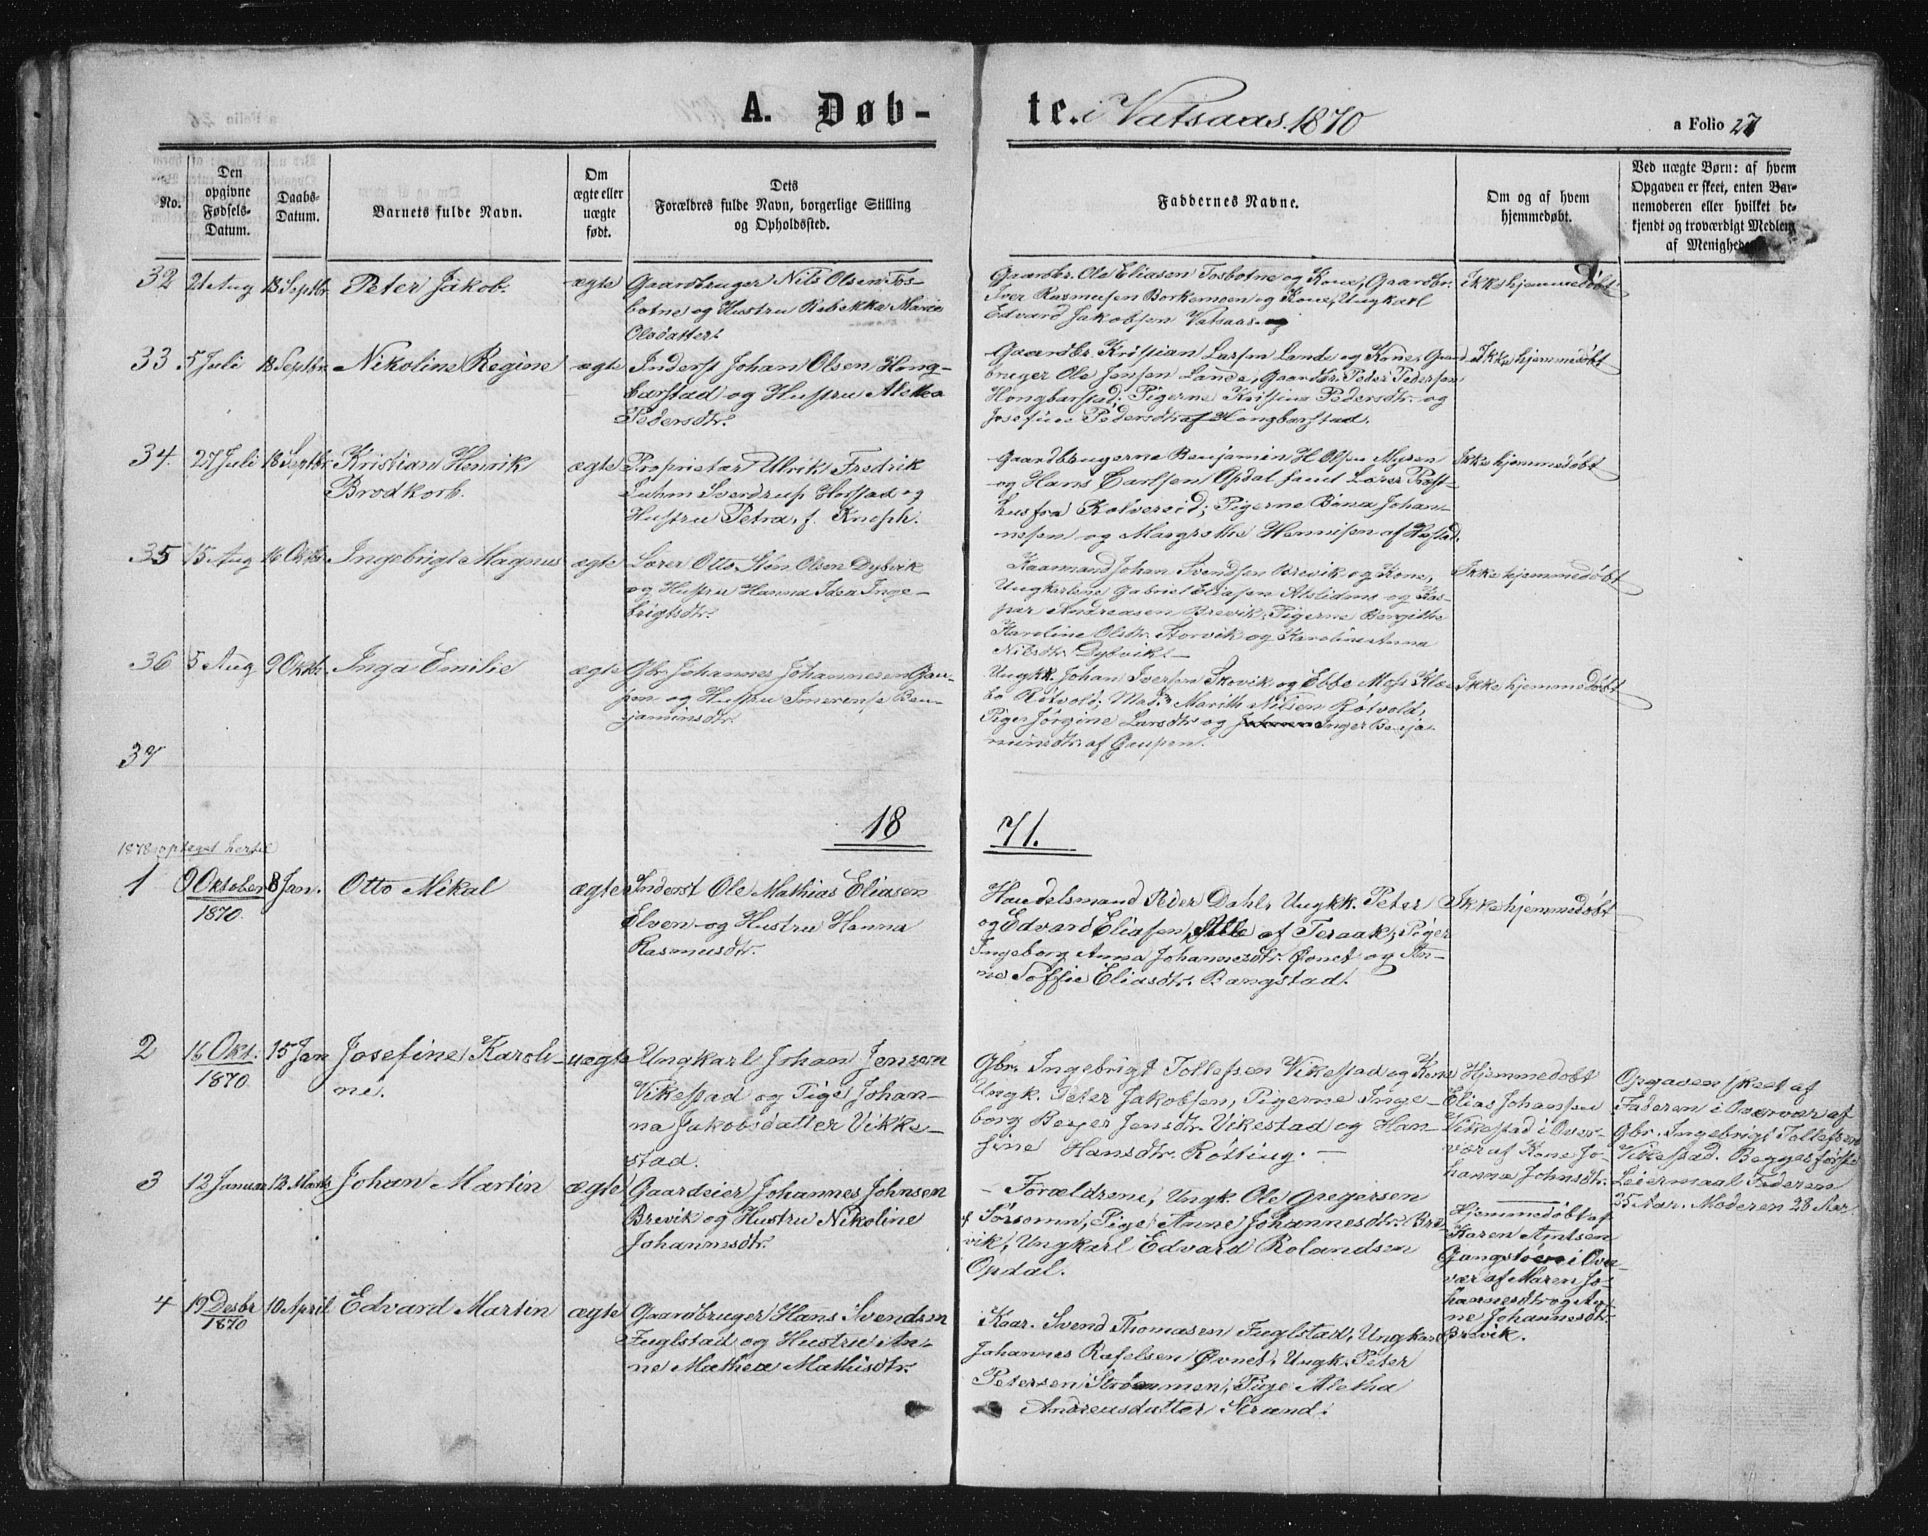 A. Døb-
te. i Vatsaas. 1870
a Folio 27
No.
Den
opgivne
Fødsels-
Datum.
Daabs-
Datum.
Barnets fulde Navn.
Om
ægte eller
uægte
født.
Dets
Forældres fulde Navn, borgerlige Stilling
og Opholdssted.
Faddernes Navne.
Om og af hvem
hjemmedøbt.
Ved uægte Børn: af hvem
Opgaven er skeet, enten Bar-
nemoderen eller hvilket be-
kjendt og troværdigt Medlem
af Menigheden.
32
21 Aug
18 Septbr
Peter Jakob.
ægte
Gaardbruger Nils Olsen Tos-
botne og Hustru Rebekka Marie
Olsdatter.
Gaardbr. Ole Eliasen Tosbotne og Kone, Gaardbr.
Iver Rasmusen Borkemoen og Kone, Ungkarl
Edvard Jakobsen Vatsaas og
Ikke hjemmedøbt
33
5 Juli
18 Septbr.
Nikoline Regine
ægte
Inderst Johan Olsen Hong-
barstad og Hustru Aletta
Pedersdtr.
Gaardbr. Kristian Larsen Lande og Kone, Gaard
bruger Ole Jensen Lande, Gaardbr. Peder Pedersen
Hongbarstad; Pigerne Kristine Pedersdtr. og
Josefine Pedersdtr. af Hongbarstad.
Ikke hjemmedøbt
34.
27 Juli
18 Septbr.
Kristian Henrik
Brodkorb.
ægte
Proprietær Ulrik Fredrik
Suhm Sverdrup Horstad og
Hustru Petra, f. Knoph.
Gaardbrugerne Benjamin H Olsen Mysen
og Hans Carlsen Opdal samt Lærer Præst-
hus fra Kolvereid; Pigerne Johan-
nesen og Margrethe Hennisen af
Ikke hjemmedøbt
35
15 Aug
16 Oktbr.
Ingebrigt Magnus
ægte
Lærer Otto Olsen Dybvik
og Hustru Hanna Idea Inge-
brigtsdtr.
Kaarmand Johan Svendsen Brevik og Kone,
Ungkarlene Gabriel Eliasen og Kas-
per Andreasen Brevik, Pigerne Bergithe
Karoline Olsdtr. Storvik og Karoline Anna
Nilsdtr. Dybvik.
Ikke hjemmedøbt
36
5 Aug
9 Oktbr.
Inga Emilie
ægte
Gbr. Johannes Johannesen Gau-
pen og Hustru Inerense Ben-
jaminsdtr.
Ungk. Johan Iversen Skovik og Ebbe
Røtvold; Mad. Marith Nilsen Rotvold,
Piger Jørgine Larsdtr. og Inger Benja-
minsdtr. af Gaupen.
Ikke hjemmedøbt
37
18
71.
1878 optaget hertil
1
9 Oktober
1870.
8 Jan.
Otto Mikal
ægte
Inderst Ole Mathias Eliasen
Elven og Hustru Hanna
Rasmusdtr.
Handelsmand Peder Dahl, Ungkk. Peter
og Edvard Eliasen, Alle af Teraak; Piger
Ingeborg Anna Johannesdtr. Øvnet og An-
ne Soffie Eliasdtr. Bangstad.
Ikke hjemmedøbt
2
16 Okt.
1870
15 Jan
Josefine Karoli-
ne.
uægte
Ungkarl Johan Jensen
Vikestad og Pige Johan-
na Jakobsdatter Vikke-
stad.
Gbr. Ingebrigt Tollefsen Vikestad og Kone
Ungk. Peter Jakobsen, Pigerne Inge-
borg Beyer Jensdtr. Vikestad og Han-
sine Hansdtr. Røtting.
Hjemmedøbt
Elias Johansen
Vikestad i Over-
vær af Kone Jo-
hanna Johnsdtr.
Opgaven skeet af
Faderen i Overvær af
Gbr. Ingebrigt Tollefsen
Vikestad. Begges første
Leiermaal. Faderen
35 Aar. Moderen 28 Aar.
3
12 Januar
12 Marts
Johan Martin
ægte
Gaardeier Johannes Johnsen
Brevik og Hustru Nikoline
Johannesdtr.
Forældrene, Ungk. Ole Gregersen
Sørsomn, Pige Anne Johannesdtr. Bre
vik, Ungkarl Edvard Rolandsen
Opdal.
Hjemmedøbt af
Karen Arntsen
Gangstøen i Over-
vær af Maren Jo-
hannesdtr og An-
ne Johannesdtr.
Brevik.
4
19 Desbr
1870
10 April
Edvard Martin
ægte
Gaardbruger Hans Svendsen
Fuglstad og Hustru An-
ne Mathea Mathisdtr.
Kaar. Svend Thomasen Fuglstad, Ungkarl
Johannes Rafelsen Øvnet, Ungk. Peter
Petersen Strømmen, Pige Aletha
Andreasdatter Strand.